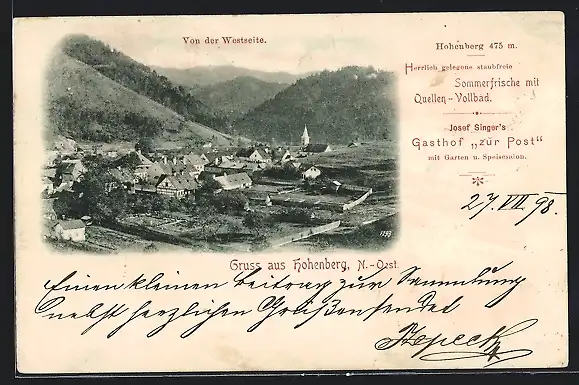 Von der Westseite.
Hohenberg 475 m.
Herrlich gelegene staubfreie
Sommerfrische mit
Quellen-Vollbad.
Josef Singer's
Gasthof „zur Post"
mit Garten u. Speisesalon.
27.VII. 98.
1299
Gruss aus Hohenberg, N.-Oest.
Einen kleinen Beitrag zur Sammlung
nebst herzlichen Grüßen sendet